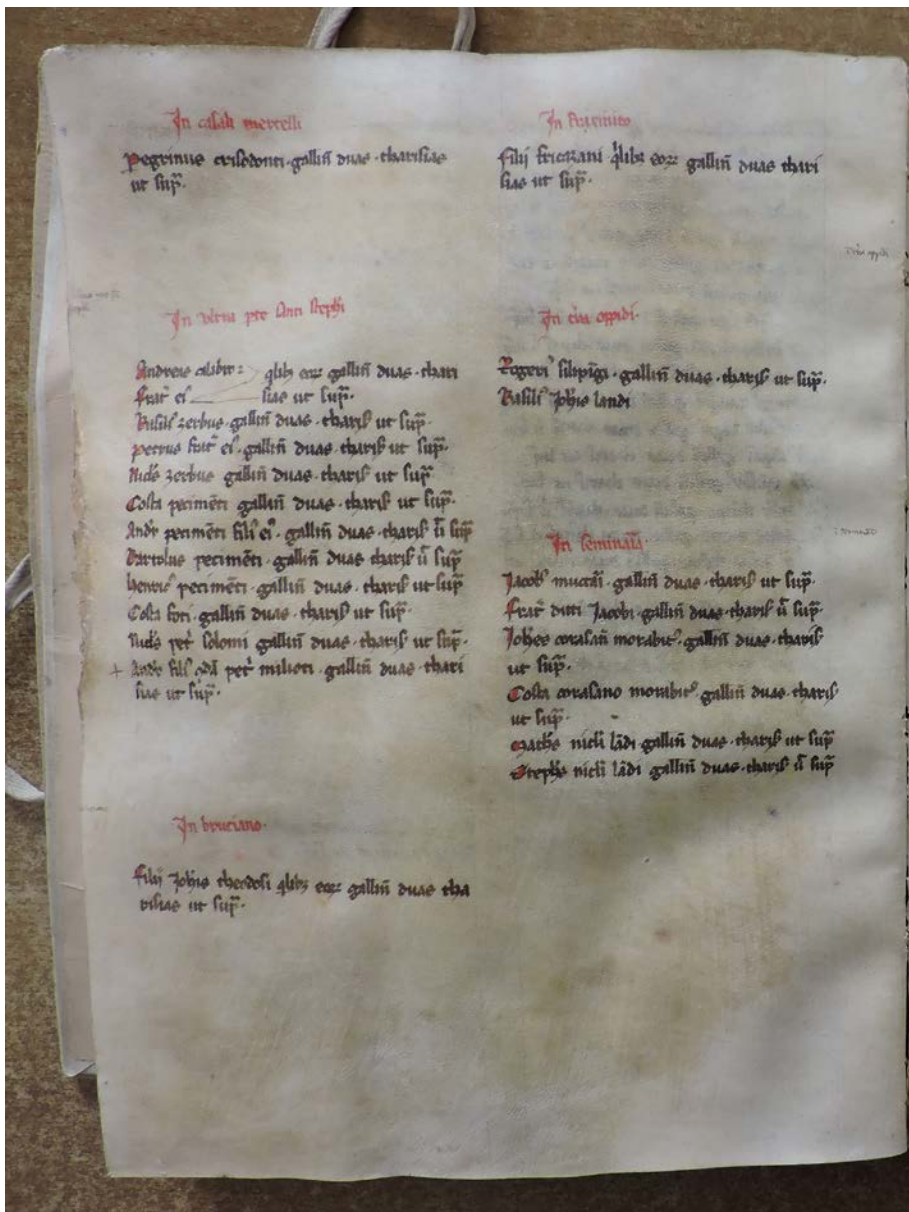 In casali mercelli
Pegrinus crisodonti · galliñ duas · charisias
ut sup̄ ·
In ulteria petre sancti steph̄i
Andreas calabro : qlib; eoꝝ gallin̄ duas · chari
frat̄ ei⁹ sias ut sup̄ ·
Basili⁹ zerbus · gallin̄ duas · charis̄ ut sup̄ ·
Petrus frat̄ ei⁹ · gallin̄ duas · charis̄ ut sup̄ ·
Nicł zerbus gallin̄ duas · charis̄ ut sup̄
Costa pecimēti gallin̄ duas · charis̄ ut sup̄ ·
Andr̄ pecimēti fili⁹ ei⁹ · gallin̄ duas · charis̄ ut̄ sup̄
Bartolus pecimēti · gallin̄ duas · charis̄ ut̄ sup̄
henric⁹ pecimēti · gallin̄ duas · charis̄ ut sup̄
Costa foti · gallin̄ duas · charis̄ ut sup̄ ·
Nicł pet̄ solomi gallin̄ duas · charis̄ ut sup̄ ·
+ Andr̄ fili⁹ qđā pet̄ milioti · gallin̄ duas · chari
sias ut sup̄ ·
In bruciano ·
filij Joh̄is theodosi qlib; eoꝝ gallin̄ duas cha
risias ut sup̄ ·
In
filij fricazani qlib; eoꝝ gallin̄ duas chari
sias ut sup̄ ·
oppidi
In oppidi ·
Rogeri⁹ · gallin̄ duas · charis̄ ut sup̄ ·
Basili⁹ Joh̄is landi
In seminara
Jacob⁹ · gallin̄ duas · charis̄ ut sup̄ ·
frat̄ dicti Jacobi · gallin̄ duas · charis̄ ut̄ sup̄ ·
Joh̄es corasan̄ morabit⁹ · gallin̄ duas · charis̄
ut sup̄ ·
Costa corasano morabit⁹ · gallin̄ duas · charis̄
ut sup̄ ·
math̄s nicłi lādi gallin̄ duas · charis̄ ut sup̄
Steph̄s nicłi lādi gallin̄ duas · charis̄ ut̄ sup̄